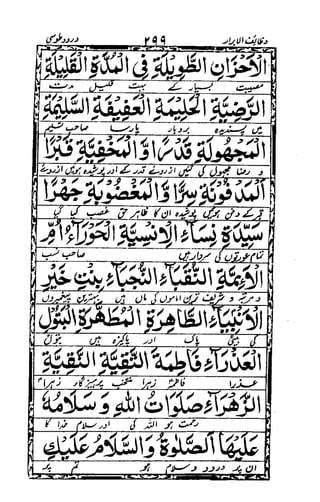 وظائف الابرار ۲۹۹ درود طوسی
الْاَحْزَانِ الطَّوِيْلَةِ فِي الْمُدَّةِ الْقَلِيْلَةِ
مصیبت بسیار کے بہت قلیل مدت
الرَّضِيَّةِ الْحَلِيْمَةِ الْعَفِيْفَةِ السَّلِيْمَةِ
میں پسندیدہ بردبار پارسا صاحب تسلیم
الْمَجْهُوْلَةِ قَدْرًا وَّالْمَخْفِيَّةِ قَبْرًا
و رضا مجہول کی گئیں ازروئے قدر کے اور پوشیدہ ہوئیں ازروئے
الْمَدْفُوْنَةِ سِرًّا وَّالْمَغْضُوْبَةِ جَهْرًا
قبر کے دفن ہوئیں پوشیدہ ان کا ظاہر حق غصب کیا گیا
سَيِّدَةِ نِسَاءِ الْاِنْسِيَّةِ الْحَوْرَاءِ اُمِّ
تمام عورتوں کی سردار ہیں صاحب نسب
الْاَئِمَّةِ النُّقَبَاءِ النُّجَبَاءِ بِنْتِ خَيْرِ
و مرتبہ و شریف ترین اماموں کی ماں ہیں بہترین پیغمبروں
الْاَنْبِيَاءِ الطَّاهِرَةِ الْمُطَهَّرَةِ الْبَتُوْلِ
کی بیٹی پاک اور پاکیزہ ہیں بتول
الْعَذْرَاءِ فَاطِمَةَ التَّقِيَّةِ النَّقِيَّةِ
عذرا فاطمہ زہرا منتخب پرہیزگار زہرا
الزَّهْرَاءِ صَلَوَاتُ اللهِ وَسَلَامُهٗ
رحمت ہو اللہ کی اور سلام خدا کا
عَلَيْهَا اَلصَّلٰوةُ وَالسَّلَامُ عَلَيْكِ
ان پر درود و سلام ہو تم پر